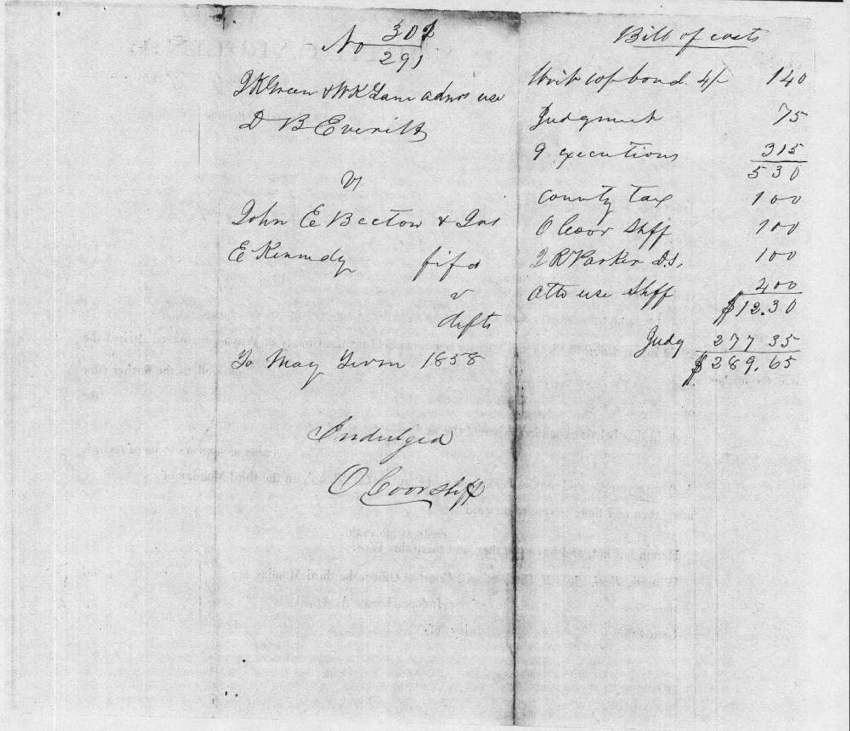 No 301
291
J K Green & W K Lane admrs use
D B Everitt
vs
John E Becton & Jas
E Kennedy fi fa
v
defts
To May Term 1858
Indulged
O Coor Shff
Bill of costs
Writ cop bond 4/- 140
Judgment 75
9 executions 315
530
county tax 100
O Coor Shff 100
J R Parker D.S. 100
Atto use Shff 400
$12.30
Judg 277 35
$289.65